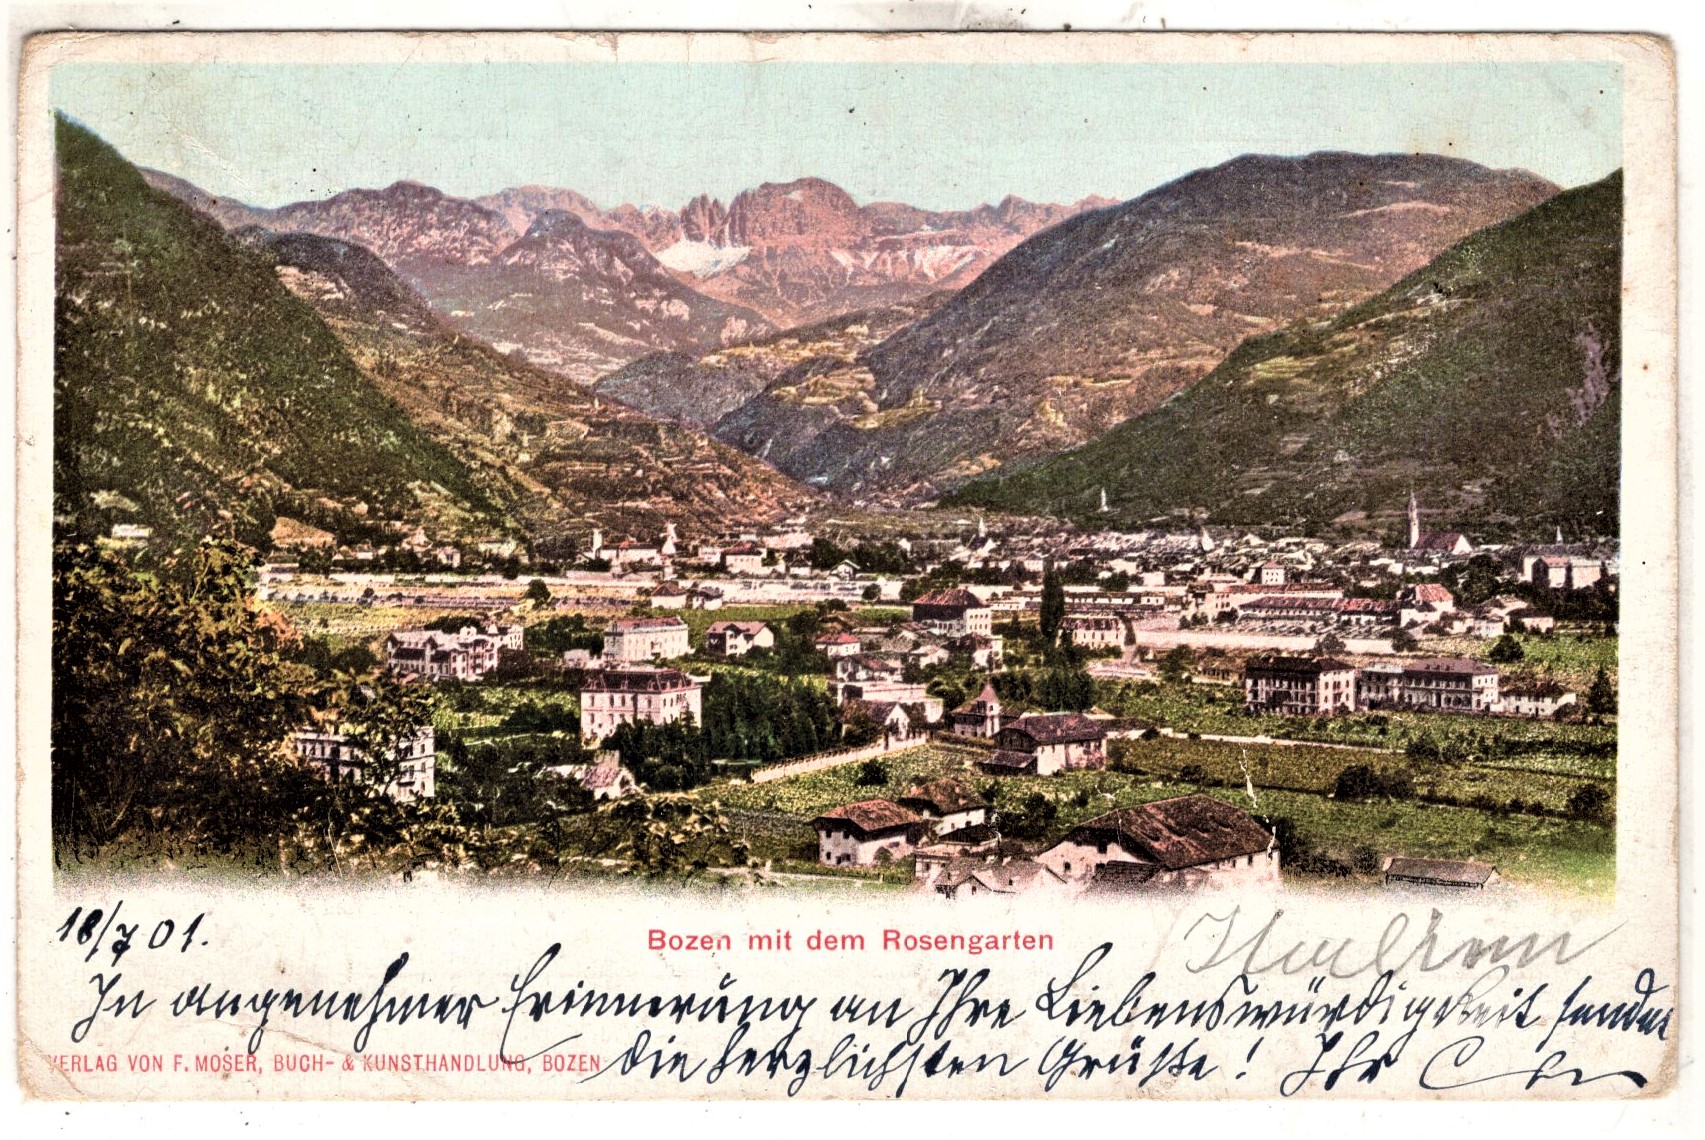 18/7 01.
Bozen mit dem Rosengarten
In angenehmer Erinnerung an Ihre Liebenswürdigkeit sendet
die herzlichsten Grüße! Ihr
VERLAG VON F. MOSER, BUCH- & KUNSTHANDLUNG, BOZEN